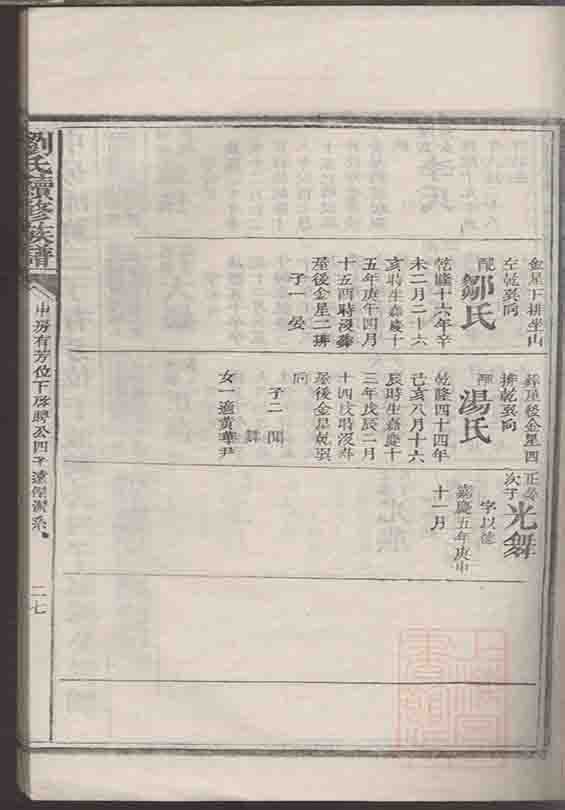 金星下排坐山
左乾巽向
配鄒氏
乾隆十六年辛
未二月二十六
亥時生嘉慶十
五年庚午四月
十五酉時沒葬
屋後金星二排
子一晏
葬屋後金星四
排乾巽向
配湯氏
乾隆四十四年
己亥八月十六
辰時生嘉慶十
三年戊辰二月
十四戌時沒葬
屋後金星乾巽
向
子二聞
舞
女一適黃華尹
正晏
次子光舞
字以德
嘉慶五年庚申
十一月
劉氏續修族譜
申房有芳位下啓聘公四子遠傑系
二七